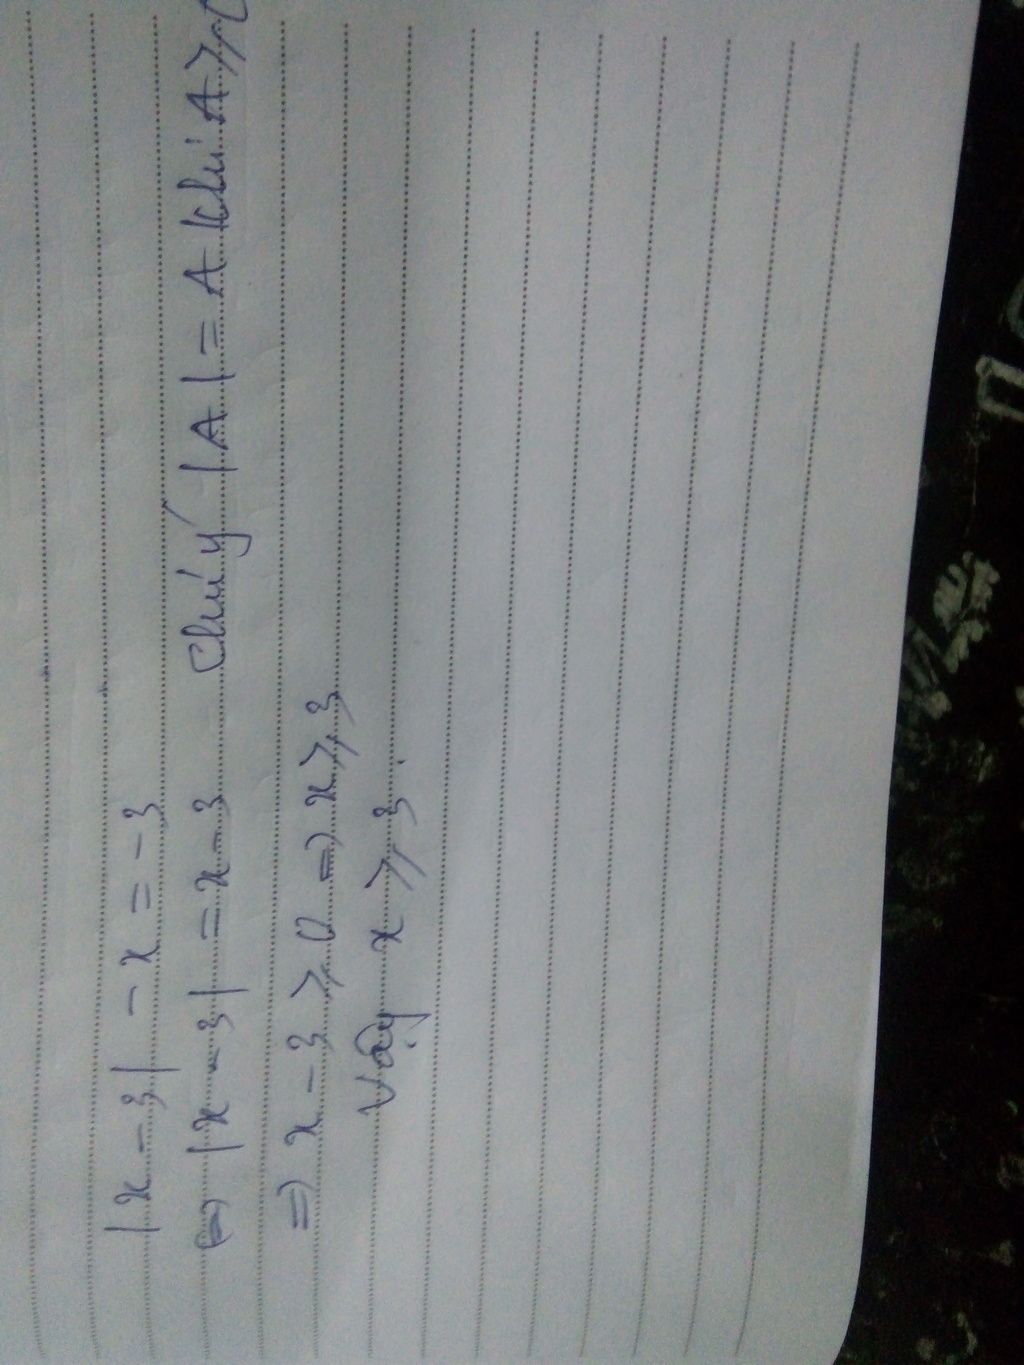 |x - 3| - x = -3
⇔ |x - 3| = x - 3 Chú ý |A| = A khi A ≥ 0
⇒ x - 3 ≥ 0 ⇒ x ≥ 3
Vậy x ≥ 3.